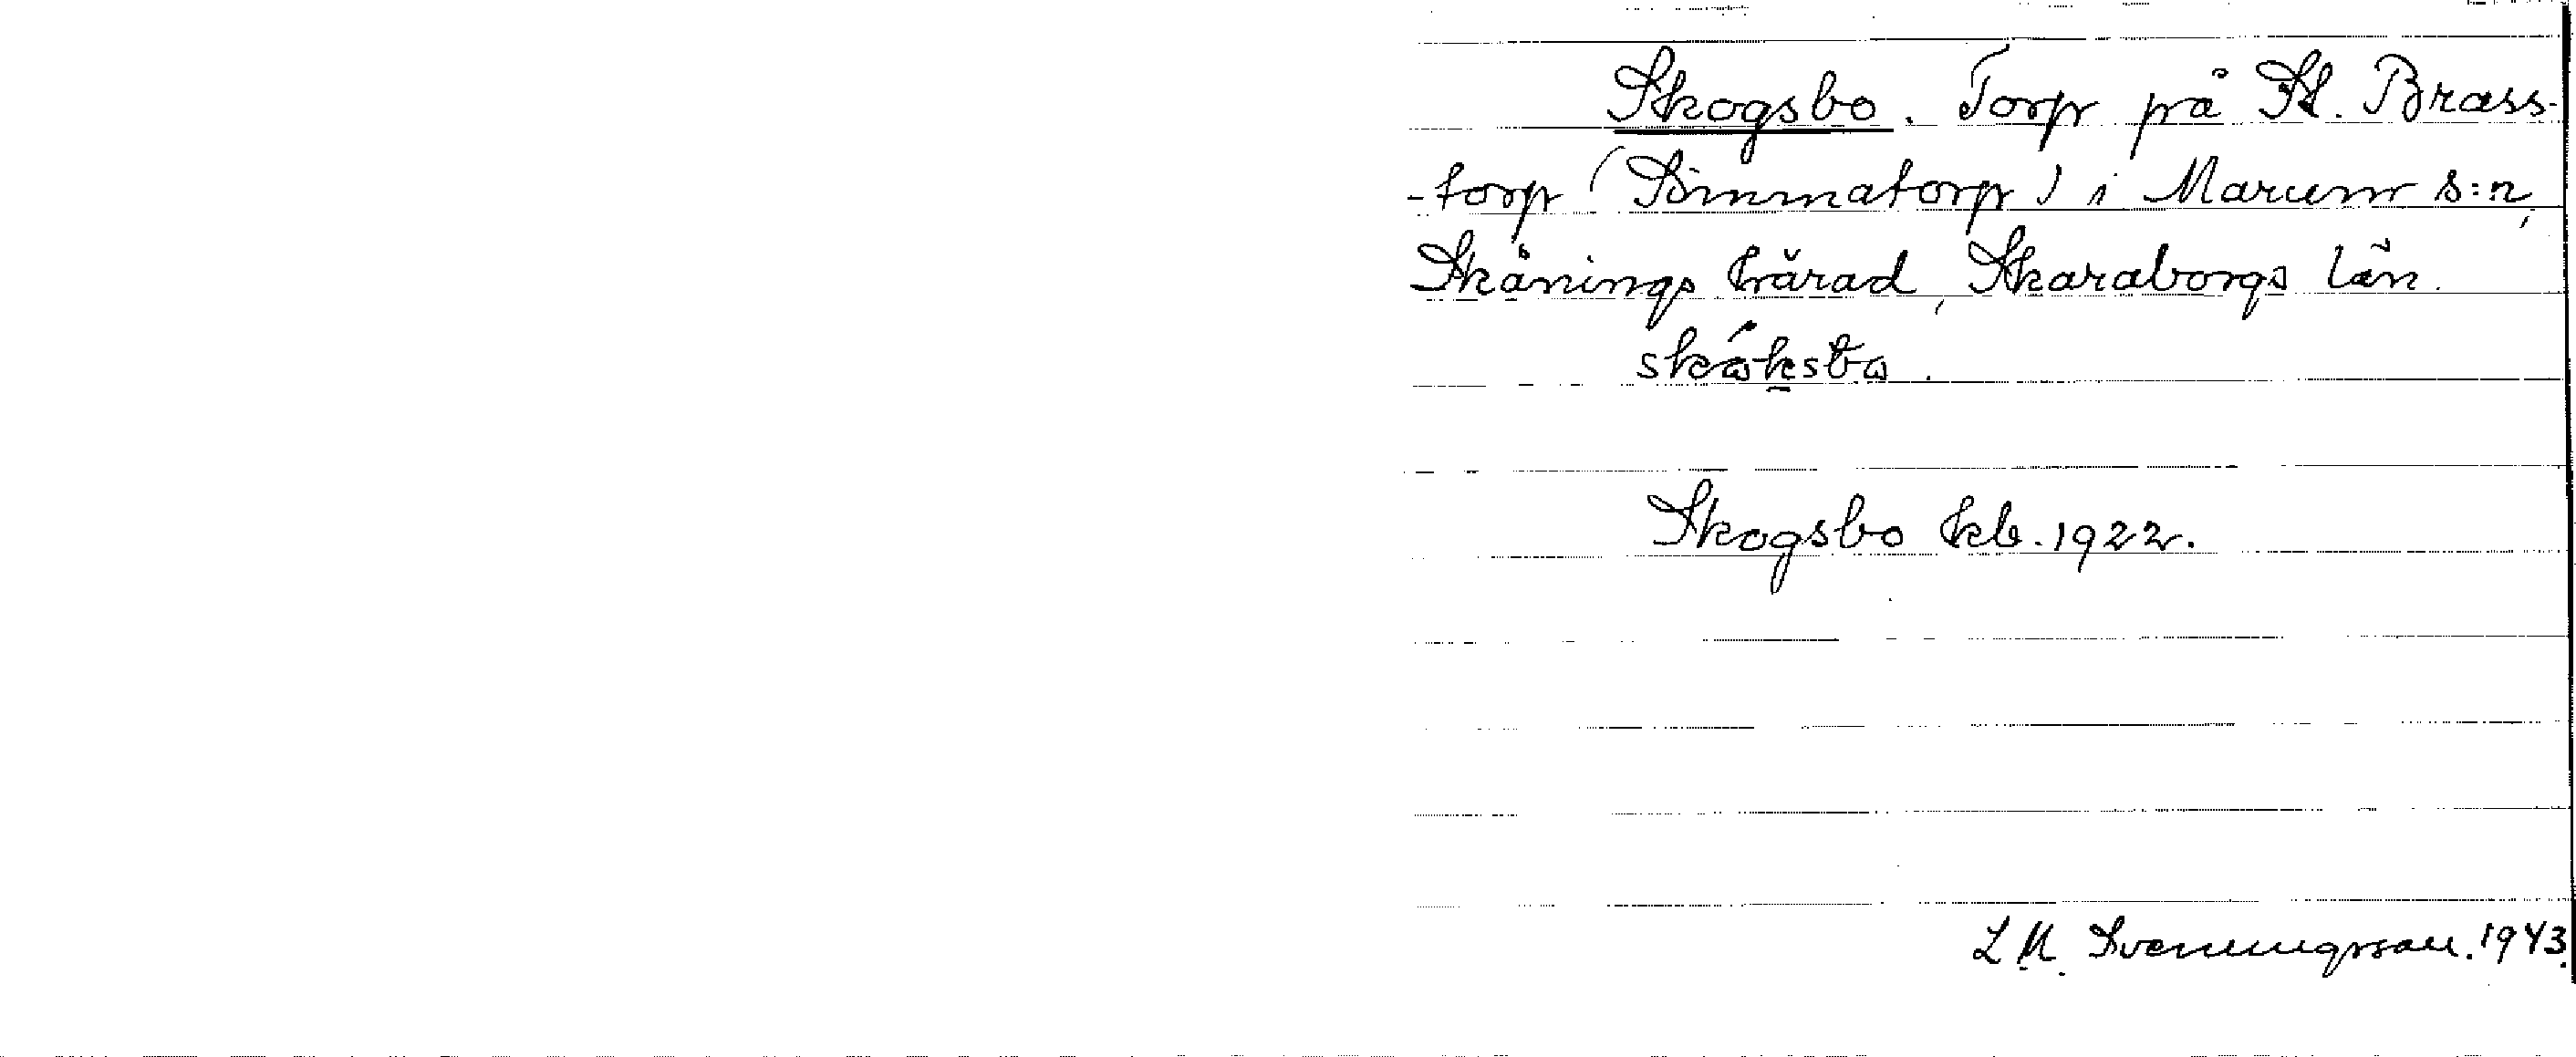 Skogsbo. Torp på St. Brass-
-torp (Simmatorp) i Marum s:n,
Skånings härad, Skaraborgs län.
Skogsbo kb. 1922.
L.M. Svenningsson. 1943.